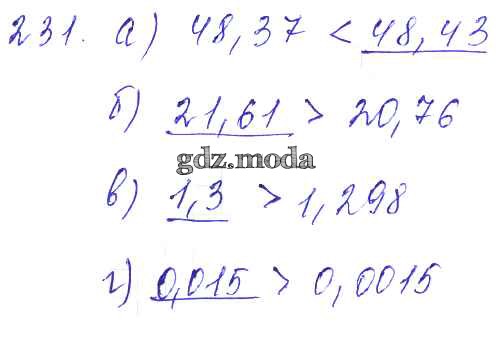 231. а) 48,37 < 48,43
б) 21,61 > 20,76
gdz.moda
в) 1,3 > 1,298
г) 0,015 > 0,0015